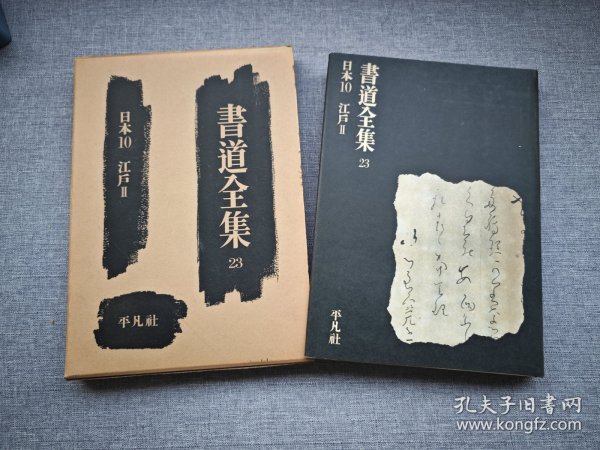 書道全集
23
日本10 江戸Ⅱ
平凡社
書道全集
23
日本10 江戸Ⅱ
平凡社
孔夫子旧书网
www.kongfz.com